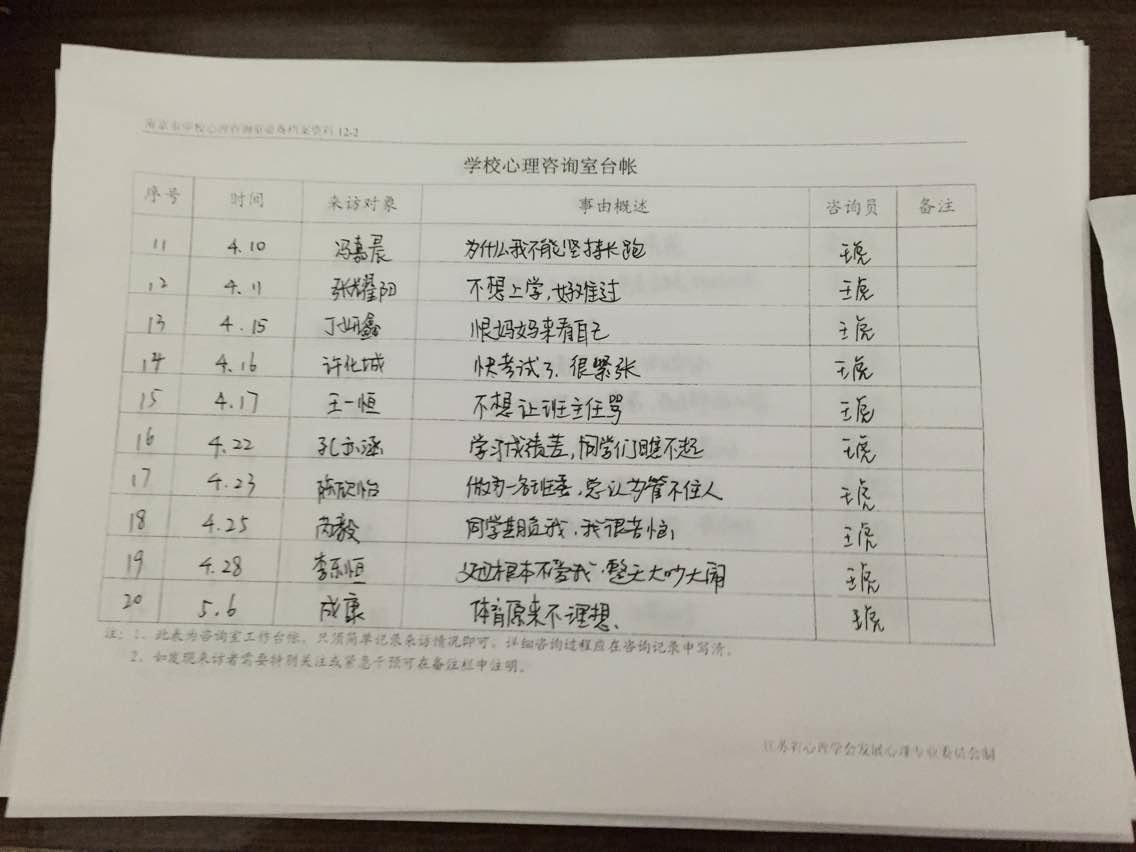 南京市学校心理咨询室必备档案资料 12-2
学校心理咨询室台帐
序号 时间 来访对象 事由概述 咨询员 备注
11 4.10 冯嘉晨 为什么我不能坚持长跑 王虎
12 4.11 张耀阳 不想上学,好难过 王虎
13 4.15 丁妍鑫 恨妈妈来看自己 王虎
14 4.16 许化城 快考试了、很紧张 王虎
15 4.17 王一恒 不想让班主任骂 王虎
16 4.22 孔亦涵 学习成绩差,同学们瞧不起 王虎
17 4.23 陈欣怡 做为一名班委,总认为管不住人 王虎
18 4.25 芮毅 同学欺负我,我很害怕 王虎
19 4.28 李乐恒 父母根本不爱我,整天大吵大闹 王虎
20 5.6 成康 体育原来不理想、 王虎
注:1、此表为咨询室工作台帐,只须简单记录来访情况即可,详细咨询过程应在咨询记录中写清。
2、如发现来访者需要特别关注或紧急干预可在备注栏中注明。
江苏省心理学会发展心理专业委员会制